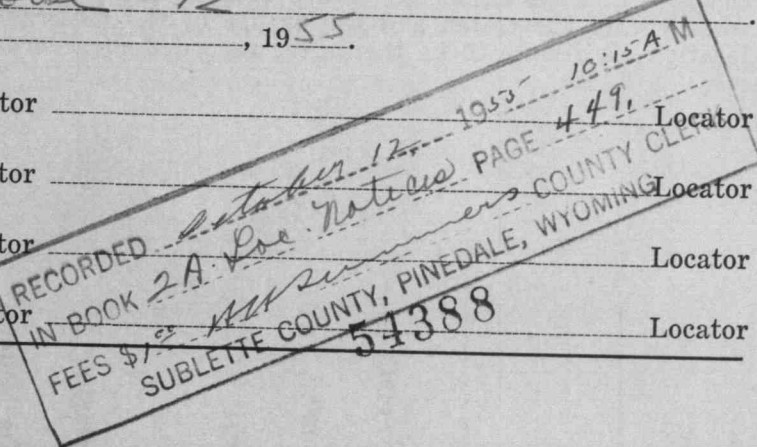 12
, 1955.
tor Locator
tor Locator
tor Locator
tor Locator
RECORDED October 12, 1955 10:15 A M
IN BOOK 2A Loc. Notices PAGE 449,
FEES $1.00 Summers COUNTY CLERK
SUBLETTE COUNTY, PINEDALE, WYOMING
54388